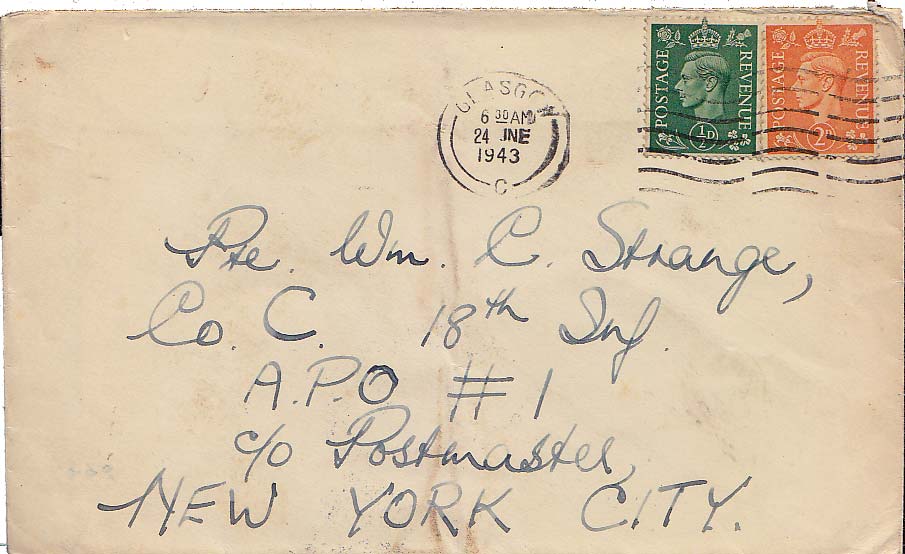 POSTAGE REVENUE ½D
POSTAGE REVENUE 2D
GLASGOW
6 30 AM
24 JNE
1943
C
Pte. Wm. C. Strange,
Co. C. 18th Inf.
A.P.O #1
c/o Postmaster,
NEW YORK CITY.